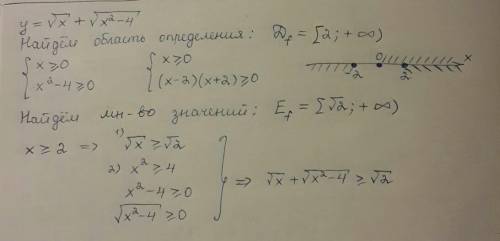 y = √x + √(x²-4)
Найдём область определения: D_f = [2; +∞)
{ x ≥ 0
x²-4 ≥ 0
{ x ≥ 0
(x-2)(x+2) ≥ 0
-2 0 2 x
Найдём мн-во значений: E_f = [√2; +∞)
x ≥ 2 => 1) √x ≥ √2
2) x² ≥ 4
x²-4 ≥ 0
√(x²-4) ≥ 0
} => √x + √(x²-4) ≥ √2